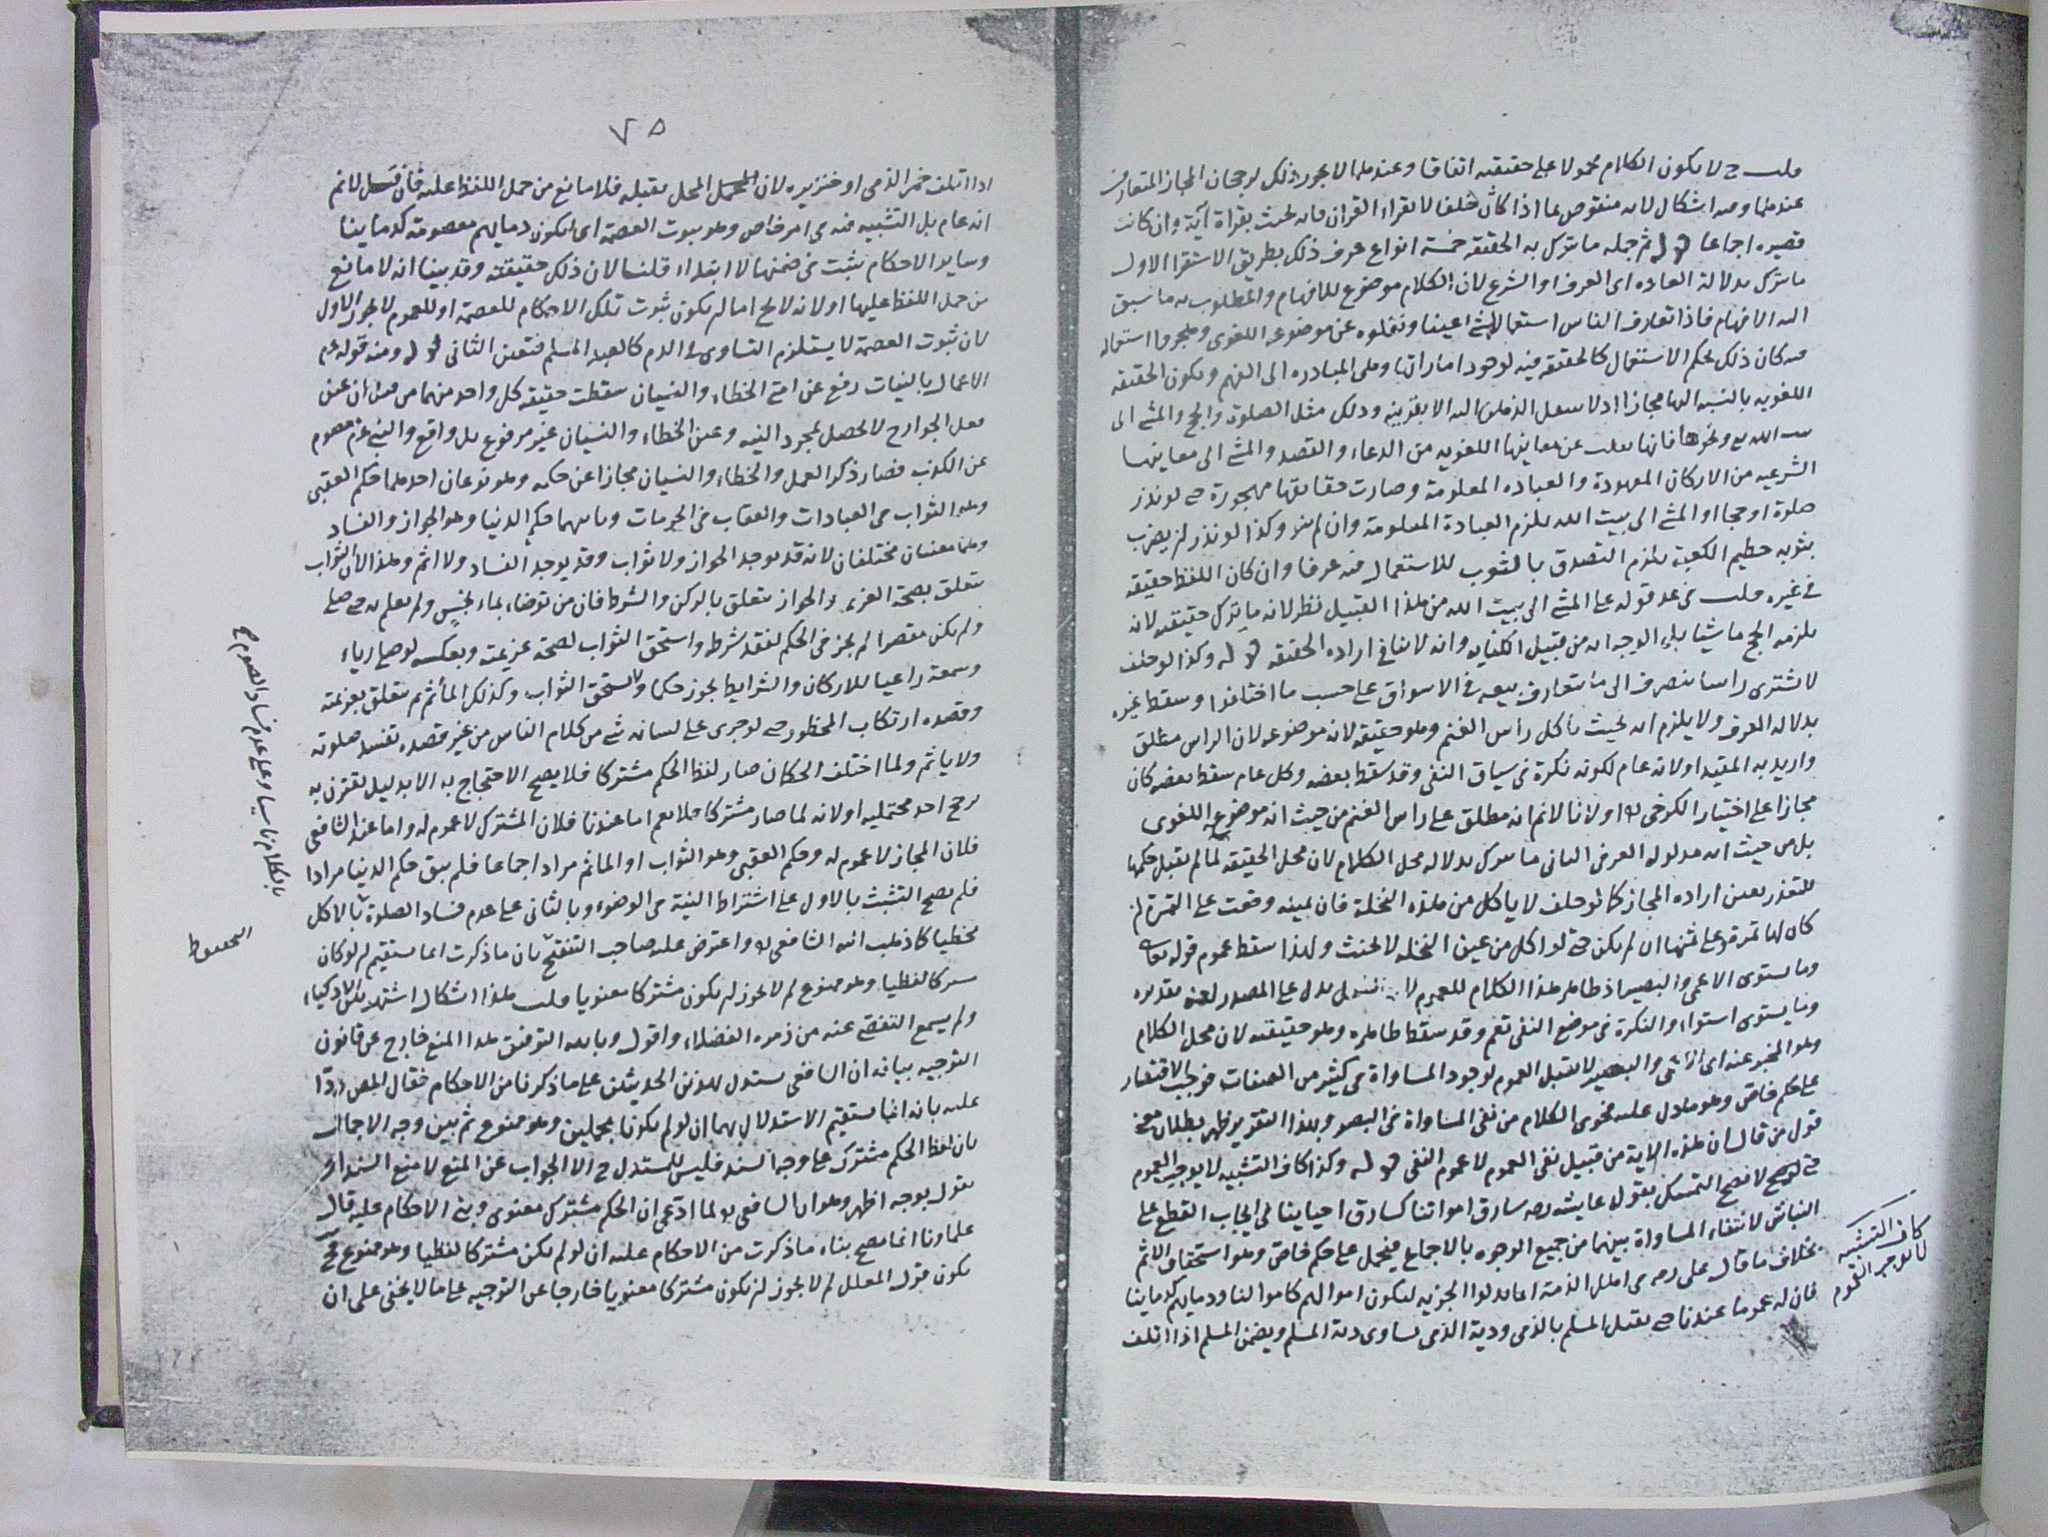 قلت ح لا يكون الكلام محمولا على حقيقته اتفاقا وعندهما لا يجوز ذلك لرجحان المجاز المتعارف
عندهما وفيه اشكال لانه منقوض بما اذا كان حلف لا يقراء القران فانه يحنث بقراة آية وان كانت
قصيره اجماعا قوله ثم جملة ما يترك به الحقيقه خمسة انواع عرف ذلك بطريق الاستقرا الاول
ما يترك بدلالة العاده اى العرف او الشرع لان الكلام موضوع للافهام والمطلوب به ما سبق
اليه الافهام فاذا تعارف الناس استعماله لشئ عينا ونقلوه عن موضوعه اللغوى وهجروا استعماله
فيه كان ذلك بحكم الاستعمال كالحقيقه فيه لوجود اماراتها وهى المبادره الى الفهم ويكون الحقيقه
اللغويه بالنسبه اليها مجازا اذ لا ينتقل الذهن اليه الا بقرينه وذلك مثل الصلوة والحج والمشى الى
بيت الله تع ونحوها فانها نقلت عن معانيها اللغويه من الدعاء والقصد والمشى الى معانيها
الشرعيه من الاركان المعهودة والعباده المعلومة وصارت حقايقها مهجورة حتى لو نذر
صلوة او حجا او المشى الى بيت الله يلزم العبادة المعلومة وان لم ينو وكذا لو نذر ان يضرب
بثوبه حطيم الكعبة يلزم التصدق بالثوب للاستعمال فيه عرفا وان كان اللفظ حقيقه
فى غيره قلت فى عد قوله على المشى الى بيت الله من هذا القبيل نظر لانه ما يترك حقيقته لانه
يلزمه الحج ماشيا بل الوجه انه من قبيل الكنايه وانه لا ينافى اراده الحقيقه قوله وكذا لو حلف
لا يشترى راسا ينصرف الى ما يتعارف بيعه فى الاسواق على حسب ما اختلفوا وسقط غيره
بدلالة العرف ولا يلزم انه يحنث باكل راس الغنم وهو حقيقه لانه موضوعه لان الراس مطلق
واريد به المقيد او لانه عام لكونه نكرة فى سياق النفى وقد سقط بعضه وكل عام سقط بعضه كان
مجازا على اختيار الكرخى او لانا لا نم انه مطلق على راس الغنم من حيث انه موضوعه اللغوى
بل من حيث انه مدلوله العرفى الثانى ما يترك بدلاله محل الكلام لان محل الحقيقه لما لم يقبل حكمها
للتعذر يعين اراده المجاز كما لو حلف لا ياكل من هذه النخلة فان يمينه وقعت على الثمرة ان
كان لها ثمرة وعلى ثمنها ان لم يكن حتى لو اكل من عين النخله لا يحنث ولهذا سقط عموم قوله تعالى
وما يستوى الاعمى والبصير اذ ظاهر هذا الكلام للعموم لان الفعل يدل على المصدر لغة تقديره
وما يستوى استواء والنكرة فى موضع النفى تعم وقد سقط ظاهره وهو حقيقته لان محل الكلام
وهو المخبر عنه اى الاعمى والبصير لا يقبل العموم لوجود المساواة فى كثير من الصفات فوجب الاقتصار
على حكم خاص وهو ما دل عليه فحوى الكلام من نفى المساواة فى البصر وبهذا التقرير ظهر بطلان
قول من قال ان هذه الاية من قبيل نفى العموم لا عموم النفى قوله وكذا كاف التشبيه لا يوجب العموم
حتى لا يصح التمسك بقول عايشة رضه سارق امواتنا كسارق احيا ينا فى ايجاب القطع على
النباش لانتفاء المساواة بينهما من جميع الوجوه بالاجماع فيحمل على حكم خاص وهو استحقاق الاثم
بخلاف ما قال على رضه فى اهل الذمة انما بذلوا الجزيه ليكون اموالهم كاموالنا ودمايهم كدماينا
فان له عموما عندنا حتى يقتل المسلم بالذمى ودية الذمى يساوى دية المسلم ويضمن المسلم اذا اتلف
كاف التشبيه
لا يوجب العموم
٧٥
اذا اتلف خمر الذمى او خنزيره لان المحل يقبله فلا مانع من حمل اللفظ عليه فان قيل لا نم
انه عام بل التشبيه فيه فى امر خاص وهو ثبوت العصمة اى ليكون دمايهم معصومة كدماينا
وساير الاحكام يثبت فى ضمنها لا ابتداء قلنا لان ذلك حقيقته وقد بينا انه لا مانع
من حمل اللفظ عليها او لانه لا يخ اما ان يكون ثبوت تلك الاحكام للعصمة او للعموم لا يجوز الاول
لان ثبوت العصمة لا يستلزم التساوى فى الدم كالعبد المسلم فتعين الثانى قوله ومنه قوله عم
الاعمال بالنيات رفع عن امتى الخطاء والنسيان سقطت حقيقه كل واحد منهما من قبل ان عين
فعل الجوارح لا يحصل بمجرد النيه وعين الخطاء والنسيان غير مرفوع بل واقع والنبى عم معصوم
عن الكذب فصار ذكر العمل والخطاء والنسيان مجازا عن حكمه وهو نوعان احدهما حكم العقبى
وهو الثواب فى العبادات والعقاب فى الحرمات وثانيهما حكم الدنيا وهو الجواز والفساد
وهما معنيان مختلفان لانه قد يوجد الجواز ولا ثواب وقد يوجد الفساد ولا اثم وهذا لان الثواب
يتعلق بصحة العزيمة والجواز يتعلق بالركن والشرط فان من توضاء بماء نجس ولم يعلم به حتى صلى
ولم يكن مقصرا لم يجز فى الحكم لفقد شرطه واستحق الثواب لصحة عزيمته وبعكسه لو صلى رياء
وسمعة راعيا للاركان والشرايط يجوز حكما ولا يستحق الثواب وكذلك المأثم يتعلق بعزيمته
وقصده ارتكاب المحظور حتى لو جرى على لسانه شئ من كلام الناس من غير قصده تفسد صلوته
ولا ياثم ولما اختلف الحكمان صار لفظ الحكم مشتركا فلا يصح الاحتجاج به الا بدليل تقترن به
يرجح احد محتمليه او لانه لما صار مشتركا فلا يعم اما عندنا فلان المشترك لا عموم له واما عند الشافعى
فلان المجاز لا عموم له وحكم العقبى وهو الثواب او الماثم مراد اجماعا فلم يبق حكم الدنيا مرادا
فلم يصح التشبث بالاول على اشتراط النية فى الوضوء وبالثانى على عدم فساد الصلوة بالاكل
مخطيا كما ذهب اليه الشافعى واعترض عليه صاحب التنقيح بان ما ذكرت انما يستقيم ان لو كان
مشتركا لفظيا وهو ممنوع لم لا يجوز ان يكون مشتركا معنويا قلت هذا اشكال اشتهر بين الاذكياء
ولم يسمع التفصى عنه من زمره الفضلاء واقول وبالله التوفيق هذا المنع خارج عن قانون
التوجيه بيانه ان الشافعى يستدل بهذين الحديثين على ما ذكرنا من الاحكام فقال المص ردا
عليه بانه انما يستقيم الاستدلال بهما ان لو لم يكونا مجملين وهو ممنوع ثم بين وجه الاجمال
بان لفظ الحكم مشترك على وجه السند فليس للمستدل ح الا الجواب عن المنع لا منع السند او
نقول بوجه اظهر وهو ان الشافعى لما ادعى ان الحكم مشترك معنوى وبنى الاحكام عليه قال
علماونا انما يصح بناء ما ذكرت من الاحكام عليه ان لو لم يكن مشتركا لفظيا وهو ممنوع فح
يكون قول المعلل لم لا يجوز ان يكون مشتركا معنويا خارجا عن التوجيه على ما لا يخفى على ان
بالكلام ناسيا وعلى عدم فساد الصوم